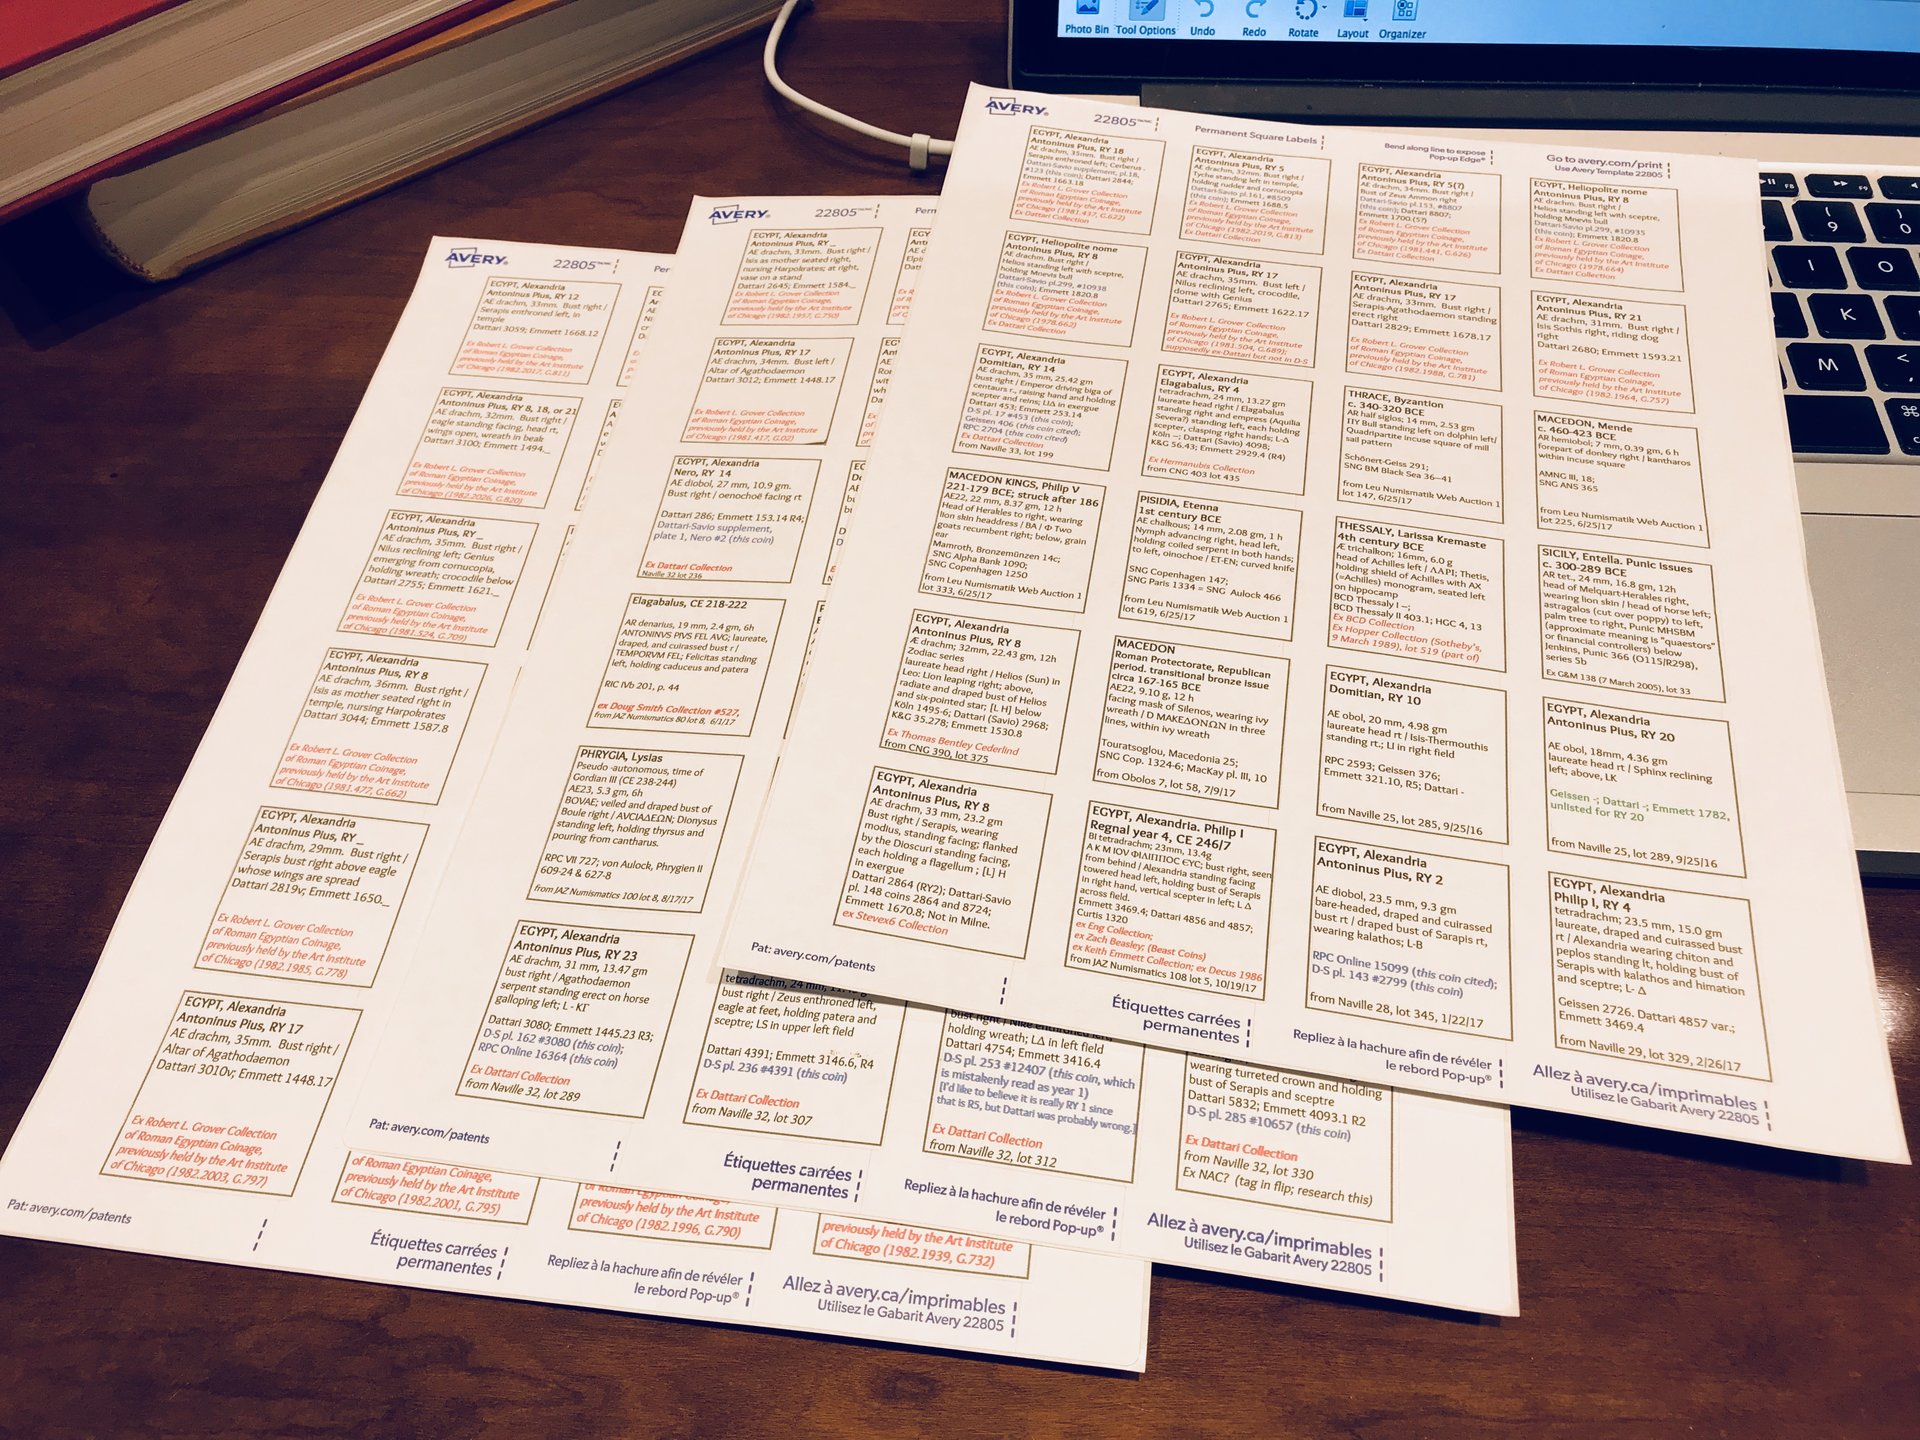 Photo Bin
Tool Options
Undo
Redo
Rotate
Layout
Organizer
AVERY
22805
Permanent Square Labels
Bend along line to expose
Pop-up Edge®
Go to avery.com/print
Use Avery Template 22805
EGYPT, Alexandria
Antoninus Pius, RY 18
AE drachm, 35mm. Bust right /
Serapis enthroned left; Cerberus
Dattari-Savio supplement, pl.18,
#123 (this coin); Dattari 2844;
Emmett 1663.18
Ex Robert L. Grover Collection
of Roman Egyptian Coinage,
previously held by the Art Institute
of Chicago (1981.437, G.622)
Ex Dattari Collection
EGYPT, Alexandria
Antoninus Pius, RY 5
AE drachm, 32mm. Bust right /
Tyche standing left in temple,
holding rudder and cornucopia
Dattari-Savio pl.161, #8509
(this coin); Emmett 1688.5
Ex Robert L. Grover Collection
of Roman Egyptian Coinage,
previously held by the Art Institute
of Chicago (1982.2019, G.813)
Ex Dattari Collection
EGYPT, Alexandria
Antoninus Pius, RY 5(?)
AE drachm, 34mm. Bust right /
Bust of Zeus Ammon right
Dattari-Savio pl.153, #8807
(this coin); Dattari 8807;
Emmett 1700.(5?)
Ex Robert L. Grover Collection
of Roman Egyptian Coinage,
previously held by the Art Institute
of Chicago (1981.441, G.626)
Ex Dattari Collection
EGYPT, Heliopolite nome
Antoninus Pius, RY 8
AE drachm. Bust right /
Helios standing left with sceptre,
holding Mnevis bull
Dattari-Savio pl.299, #10935
(this coin); Emmett 1820.8
Ex Robert L. Grover Collection
of Roman Egyptian Coinage,
previously held by the Art Institute
of Chicago (1978.664)
Ex Dattari Collection
EGYPT, Heliopolite nome
Antoninus Pius, RY 8
AE drachm. Bust right /
Helios standing left with sceptre,
holding Mnevis bull
Dattari-Savio pl.299, #10938
(this coin); Emmett 1820.8
Ex Robert L. Grover Collection
of Roman Egyptian Coinage,
previously held by the Art Institute
of Chicago (1978.662)
Ex Dattari Collection
EGYPT, Alexandria
Antoninus Pius, RY 17
AE drachm, 35mm. Bust left /
Nilus reclining left, crocodile,
dome with Genius
Dattari 2765; Emmett 1622.17
Ex Robert L. Grover Collection
of Roman Egyptian Coinage,
previously held by the Art Institute
of Chicago (1981.504, G.689);
supposedly ex-Dattari but not in D-S
EGYPT, Alexandria
Antoninus Pius, RY 17
AE drachm, 33mm. Bust right /
Serapis-Agathodaemon standing
erect right
Dattari 2829; Emmett 1678.17
Ex Robert L. Grover Collection
of Roman Egyptian Coinage,
previously held by the Art Institute
of Chicago (1982.1988, G.781)
EGYPT, Alexandria
Antoninus Pius, RY 21
AE drachm, 31mm. Bust right /
Isis Sothis right, riding dog
right
Dattari 2680; Emmett 1593.21
Ex Robert L. Grover Collection
of Roman Egyptian Coinage,
previously held by the Art Institute
of Chicago (1982.1964, G.757)
EGYPT, Alexandria
Domitian, RY 14
AE drachm, 35 mm, 25.42 gm
bust right / Emperor driving biga of
centaurs r., raising hand and holding
scepter and reins; LIΔ in exergue
Dattari 453; Emmett 253.14
D-S pl. 17 #453 (this coin);
Geissen 406 (this coin cited);
RPC 2704 (this coin cited)
Ex Dattari Collection
from Naville 33, lot 199
EGYPT, Alexandria
Elagabalus, RY 4
tetradrachm, 24 mm, 13.27 gm
laureate head right / Elagabalus
standing right and empress (Aquilia
Severa?) standing left, each holding
scepter, clasping right hands; L-Δ
Köln --; Dattari (Savio) 4098;
K&G 56.43; Emmett 2929.4 (R4)
Ex Hermanubis Collection
from CNG 403 lot 435
THRACE, Byzantion
c. 340-320 BCE
AR half siglos; 14 mm, 2.53 gm
ΠΥ Bull standing left on dolphin left/
Quadripartite incuse square of mill
sail pattern
Schönert-Geiss 291;
SNG BM Black Sea 36–41
from Leu Numismatik Web Auction 1
lot 147, 6/25/17
MACEDON, Mende
c. 460-423 BCE
AR hemiobol; 7 mm, 0.39 gm, 6 h
forepart of donkey right / kantharos
within incuse square
AMNG III, 18;
SNG ANS 365
from Leu Numismatik Web Auction 1
lot 225, 6/25/17
MACEDON KINGS, Philip V
221-179 BCE; struck after 186
AE22, 22 mm, 8.37 gm, 12 h
Head of Herakles to right, wearing
lion skin headdress / BA / Φ Two
goats recumbent right; below, grain
ear
Mamroth, Bronzemünzen 14c;
SNG Alpha Bank 1090;
SNG Copenhagen 1250
from Leu Numismatik Web Auction 1
lot 333, 6/25/17
PISIDIA, Etenna
1st century BCE
AE chalkous; 14 mm, 2.08 gm, 1 h
Nymph advancing right, head left,
holding coiled serpent in both hands;
to left, oinochoe / ET-EN; curved knife
SNG Copenhagen 147;
SNG Paris 1334 = SNG Aulock 466
from Leu Numismatik Web Auction 1
lot 619, 6/25/17
THESSALY, Larissa Kremaste
4th century BCE
Æ trichalkon; 16mm, 6.0 g
head of Achilles left / ΛAPI; Thetis,
holding shield of Achilles with AX
(=Achilles) monogram, seated left
on hippocamp
BCD Thessaly I –;
BCD Thessaly II 403.1; HGC 4, 13
Ex BCD Collection
Ex Hopper Collection (Sotheby's,
9 March 1989), lot 519 (part of)
SICILY, Entella. Punic issues
c. 300-289 BCE
AR tet., 24 mm, 16.8 gm, 12h
head of Melquart-Herakles right,
wearing lion skin / head of horse left;
astragalos (cut over poppy) to left,
palm tree to right, Punic MHSBM
(approximate meaning is "quaestors"
or financial controllers) below
Jenkins, Punic 366 (O115/R298),
series 5b
Ex G&M 138 (7 March 2005), lot 33
EGYPT, Alexandria
Antoninus Pius, RY 8
Æ drachm; 32mm, 22.43 gm, 12h
Zodiac series
laureate head right / Helios (Sun) in
Leo: Lion leaping right; above,
radiate and draped bust of Helios
and six-pointed star; [L H] below
Köln 1495-6; Dattari (Savio) 2968;
K&G 35.278; Emmett 1530.8
Ex Thomas Bentley Cederlind
from CNG 390, lot 375
MACEDON
Roman Protectorate, Republican
period. transitional bronze issue
circa 167-165 BCE
AE22, 9.10 g, 12 h
facing mask of Silenos, wearing ivy
wreath / D MAKEΔONΩN in three
lines, within ivy wreath
Touratsoglou, Macedonia 25;
SNG Cop. 1324-6; MacKay pl. III, 10
from Obolos 7, lot 58, 7/9/17
EGYPT, Alexandria
Domitian, RY 10
AE obol, 20 mm, 4.98 gm
laureate head rt / Isis-Thermouthis
standing rt.; LI in right field
RPC 2593; Geissen 376;
Emmett 321.10, R5; Dattari -
from Naville 25, lot 285, 9/25/16
EGYPT, Alexandria
Antoninus Pius, RY 20
AE obol, 18mm, 4.36 gm
laureate head rt / Sphinx reclining
left; above, LK
Geissen -; Dattari -; Emmett 1782,
unlisted for RY 20
from Naville 25, lot 289, 9/25/16
EGYPT, Alexandria
Antoninus Pius, RY 8
AE drachm, 33 mm, 23.2 gm
Bust right / Serapis, wearing
modius, standing facing; flanked
by the Dioscuri standing facing,
each holding a flagellum ; [L] H
in exergue
Dattari 2864 (RY2); Dattari-Savio
pl. 148 coins 2864 and 8724;
Emmett 1670.8; Not in Milne.
ex Stevex6 Collection
EGYPT, Alexandria. Philip I
Regnal year 4, CE 246/7
BI tetradrachm; 23mm, 13.4g
A K M IOV ΦIΛIΠΠOC EYC; bust right, seen
from behind / Alexandria standing facing
towered head left, holding bust of Serapis
in right hand, vertical scepter in left; L Δ
across field.
Emmett 3469.4; Dattari 4856 and 4857;
Curtis 1320
ex Eng Collection;
ex Zach Beasley; (Beast Coins)
ex Keith Emmett Collection; ex Decus 1986
from JAZ Numismatics 108 lot 5, 10/19/17
EGYPT, Alexandria
Antoninus Pius, RY 2
AE diobol, 23.5 mm, 9.3 gm
bare-headed, draped and cuirassed
bust rt / draped bust of Sarapis rt,
wearing kalathos; L-B
RPC Online 15099 (this coin cited);
D-S pl. 143 #2799 (this coin)
from Naville 28, lot 345, 1/22/17
EGYPT, Alexandria
Philip I, RY 4
tetradrachm; 23.5 mm, 15.0 gm
laureate, draped and cuirassed bust
rt / Alexandria wearing chiton and
peplos standing lt, holding bust of
Serapis with kalathos and himation
and sceptre; L- Δ
Geissen 2726. Dattari 4857 var.;
Emmett 3469.4
from Naville 29, lot 329, 2/26/17
Pat: avery.com/patents
Étiquettes carrées
permanentes
Repliez à la hachure afin de révéler
le rebord Pop-up®
Allez à avery.ca/imprimables
Utilisez le Gabarit Avery 22805
AVERY
22805
EGYPT, Alexandria
Antoninus Pius, RY _
AE drachm, 33mm. Bust right /
Isis as mother seated right,
nursing Harpokrates; at right,
vase on a stand
Dattari 2645; Emmett 1584._
Ex Robert L. Grover Collection
of Roman Egyptian Coinage,
previously held by the Art Institute
of Chicago (1982.1957, G.750)
EGYPT, Alexandria
Antoninus Pius, RY 17
AE drachm, 34mm. Bust left /
Altar of Agathodaemon
Dattari 3012; Emmett 1448.17
Ex Robert L. Grover Collection
of Roman Egyptian Coinage,
previously held by the Art Institute
of Chicago (1981.417, G.02)
EGYPT, Alexandria
Nero, RY 14
AE diobol, 27 mm, 10.9 gm.
Bust right / oenochoë facing rt
Dattari 286; Emmett 153.14 R4;
Dattari-Savio supplement,
plate 1, Nero #2 (this coin)
Ex Dattari Collection
Naville 32 lot 236
Elagabalus, CE 218-222
AR denarius, 19 mm, 2.4 gm, 6h
ANTONINVS PIVS FEL AVG; laureate,
draped, and cuirassed bust r /
TEMPORVM FEL; Felicitas standing
left, holding caduceus and patera
RIC IVb 201, p. 44
ex Doug Smith Collection #527,
from JAZ Numismatics 80 lot 8, 6/1/17
PHRYGIA, Lysias
Pseudo -autonomous, time of
Gordian III (CE 238-244)
AE23, 5.3 gm, 6h
BOVAE; veiled and draped bust of
Boule right / AVCIAΔEΩN; Dionysus
standing left, holding thyrsus and
pouring from cantharus.
RPC VII 727; von Aulock, Phrygien II
609-24 & 627-8
from JAZ Numismatics 100 lot 8, 8/17/17
EGYPT, Alexandria
Antoninus Pius, RY 23
AE drachm, 31 mm, 13.47 gm
bust right / Agathodaemon
serpent standing erect on horse
galloping left; L - KΓ
Dattari 3080; Emmett 1445.23 R3;
D-S pl. 162 #3080 (this coin);
RPC Online 16364 (this coin)
Ex Dattari Collection
from Naville 32, lot 289
bust right / Zeus enthroned left,
eagle at feet, holding patera and
sceptre; LS in upper left field
Dattari 4391; Emmett 3146.6, R4
D-S pl. 236 #4391 (this coin)
Ex Dattari Collection
from Naville 32, lot 307
holding wreath; LΔ in left field
Dattari 4754; Emmett 3416.4
D-S pl. 253 #12407 (this coin, which
is mistakenly read as year 1)
[I'd like to believe it is really RY 1 since
that is R5, but Dattari was probably wrong.]
Ex Dattari Collection
from Naville 32, lot 312
wearing turreted crown and holding
bust of Serapis and sceptre
Dattari 5832; Emmett 4093.1 R2
D-S pl. 285 #10657 (this coin)
Ex Dattari Collection
from Naville 32, lot 330
Ex NAC? (tag in flip; research this)
Pat: avery.com/patents
Étiquettes carrées
permanentes
Repliez à la hachure afin de révéler
le rebord Pop-up®
Allez à avery.ca/imprimables
Utilisez le Gabarit Avery 22805
AVERY
22805
EGYPT, Alexandria
Antoninus Pius, RY 12
AE drachm, 33mm. Bust right /
Serapis enthroned left, in
temple
Dattari 3059; Emmett 1668.12
Ex Robert L. Grover Collection
of Roman Egyptian Coinage,
previously held by the Art Institute
of Chicago (1982.2017, G.811)
EGYPT, Alexandria
Antoninus Pius, RY 8, 18, or 21
AE drachm, 32mm. Bust right/
eagle standing facing, head rt,
wings open, wreath in beak
Dattari 3100; Emmett 1494._
Ex Robert L. Grover Collection
of Roman Egyptian Coinage,
previously held by the Art Institute
of Chicago (1982.2026, G.820)
EGYPT, Alexandria
Antoninus Pius, RY _
AE drachm, 35mm. Bust right /
Nilus reclining left; Genius
emerging from cornucopia,
holding wreath; crocodile below
Dattari 2755; Emmett 1621._
Ex Robert L. Grover Collection
of Roman Egyptian Coinage,
previously held by the Art Institute
of Chicago (1981.524, G.709)
EGYPT, Alexandria
Antoninus Pius, RY 8
AE drachm, 36mm. Bust right /
Isis as mother seated right in
temple, nursing Harpokrates
Dattari 3044; Emmett 1587.8
Ex Robert L. Grover Collection
of Roman Egyptian Coinage,
previously held by the Art Institute
of Chicago (1981.477, G.662)
EGYPT, Alexandria
Antoninus Pius, RY _
AE drachm, 29mm. Bust right /
Serapis bust right above eagle
whose wings are spread
Dattari 2819v, Emmett 1650._
Ex Robert L. Grover Collection
of Roman Egyptian Coinage,
previously held by the Art Institute
of Chicago (1982.1985, G.778)
EGYPT, Alexandria
Antoninus Pius, RY 17
AE drachm, 35mm. Bust right /
Altar of Agathodaemon
Dattari 3010v; Emmett 1448.17
Ex Robert L. Grover Collection
of Roman Egyptian Coinage,
previously held by the Art Institute
of Chicago (1982.2003, G.797)
of Roman Egyptian Coinage,
previously held by the Art Institute
of Chicago (1982.2001, G.795)
previously held by the Art Institute
of Chicago (1982.1996, G.790)
previously held by the Art Institute
of Chicago (1982.1939, G.732)
Pat: avery.com/patents
Étiquettes carrées
permanentes
Repliez à la hachure afin de révéler
le rebord Pop-up®
Allez à avery.ca/imprimables
Utilisez le Gabarit Avery 22805